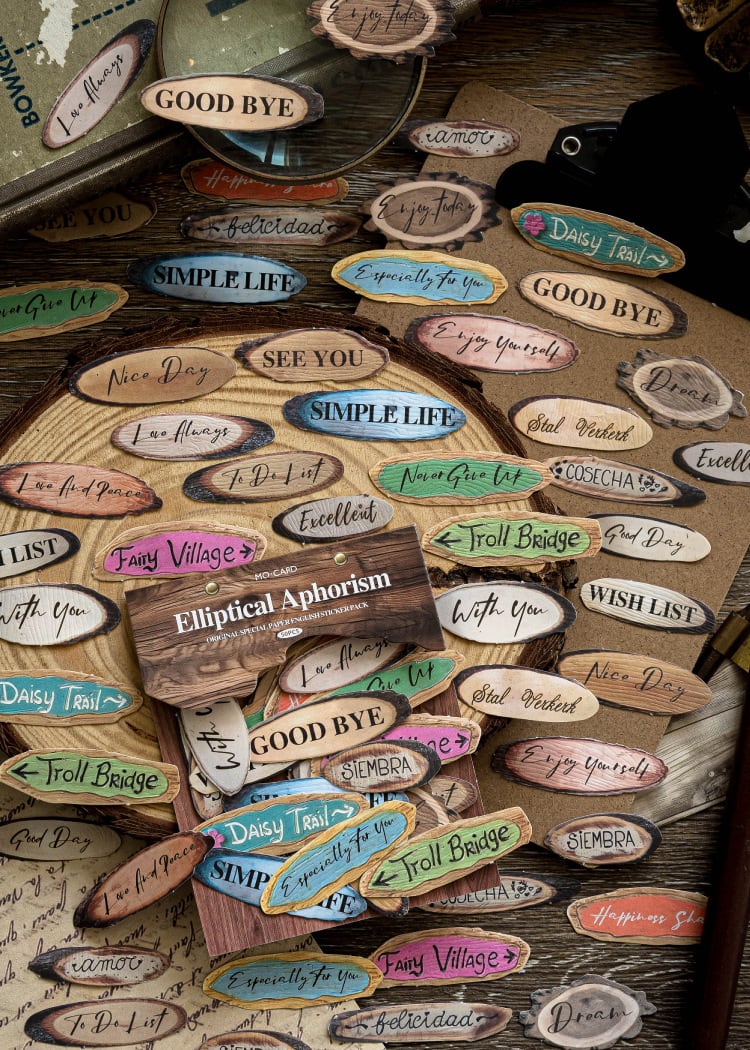 BOWKER
Love Always
Enjoy today
GOOD BYE
amor
SEE YOU
felicidad
Enjoy today
DAISY TRAIL
Never Give Up
SIMPLE LIFE
Especially For You
GOOD BYE
Enjoy Yourself
Nice Day
SEE YOU
Dream
Love Always
SIMPLE LIFE
Stal Verkerk
Love And Peace
To Do List
Never Give Up
COSECHA
Excell
Excellent
H LIST
FAIRY VILLAGE
TROLL BRIDGE
Good Day
MO·CARD
Elliptical Aphorism
ORIGINAL SPECIAL PAPER ENGLISH STICKER PACK
50PCS
With You
With You
WISH LIST
Love Always
Give Up
DAISY TRAIL
Stal Verkerk
Nice Day
With
GOOD BYE
SiEMBRA
TROLL BRIDGE
Enjoy Yourself
Good Day
DAISY TRAIL
Especially For You
TROLL BRIDGE
SiEMBRA
Love And Peace
SIMP
LIFE
COSECHA
Happiness Sha
amor
Especially For You
FAIRY VILLAGE
To Do List
felicidad
Dream
SiEMBRA